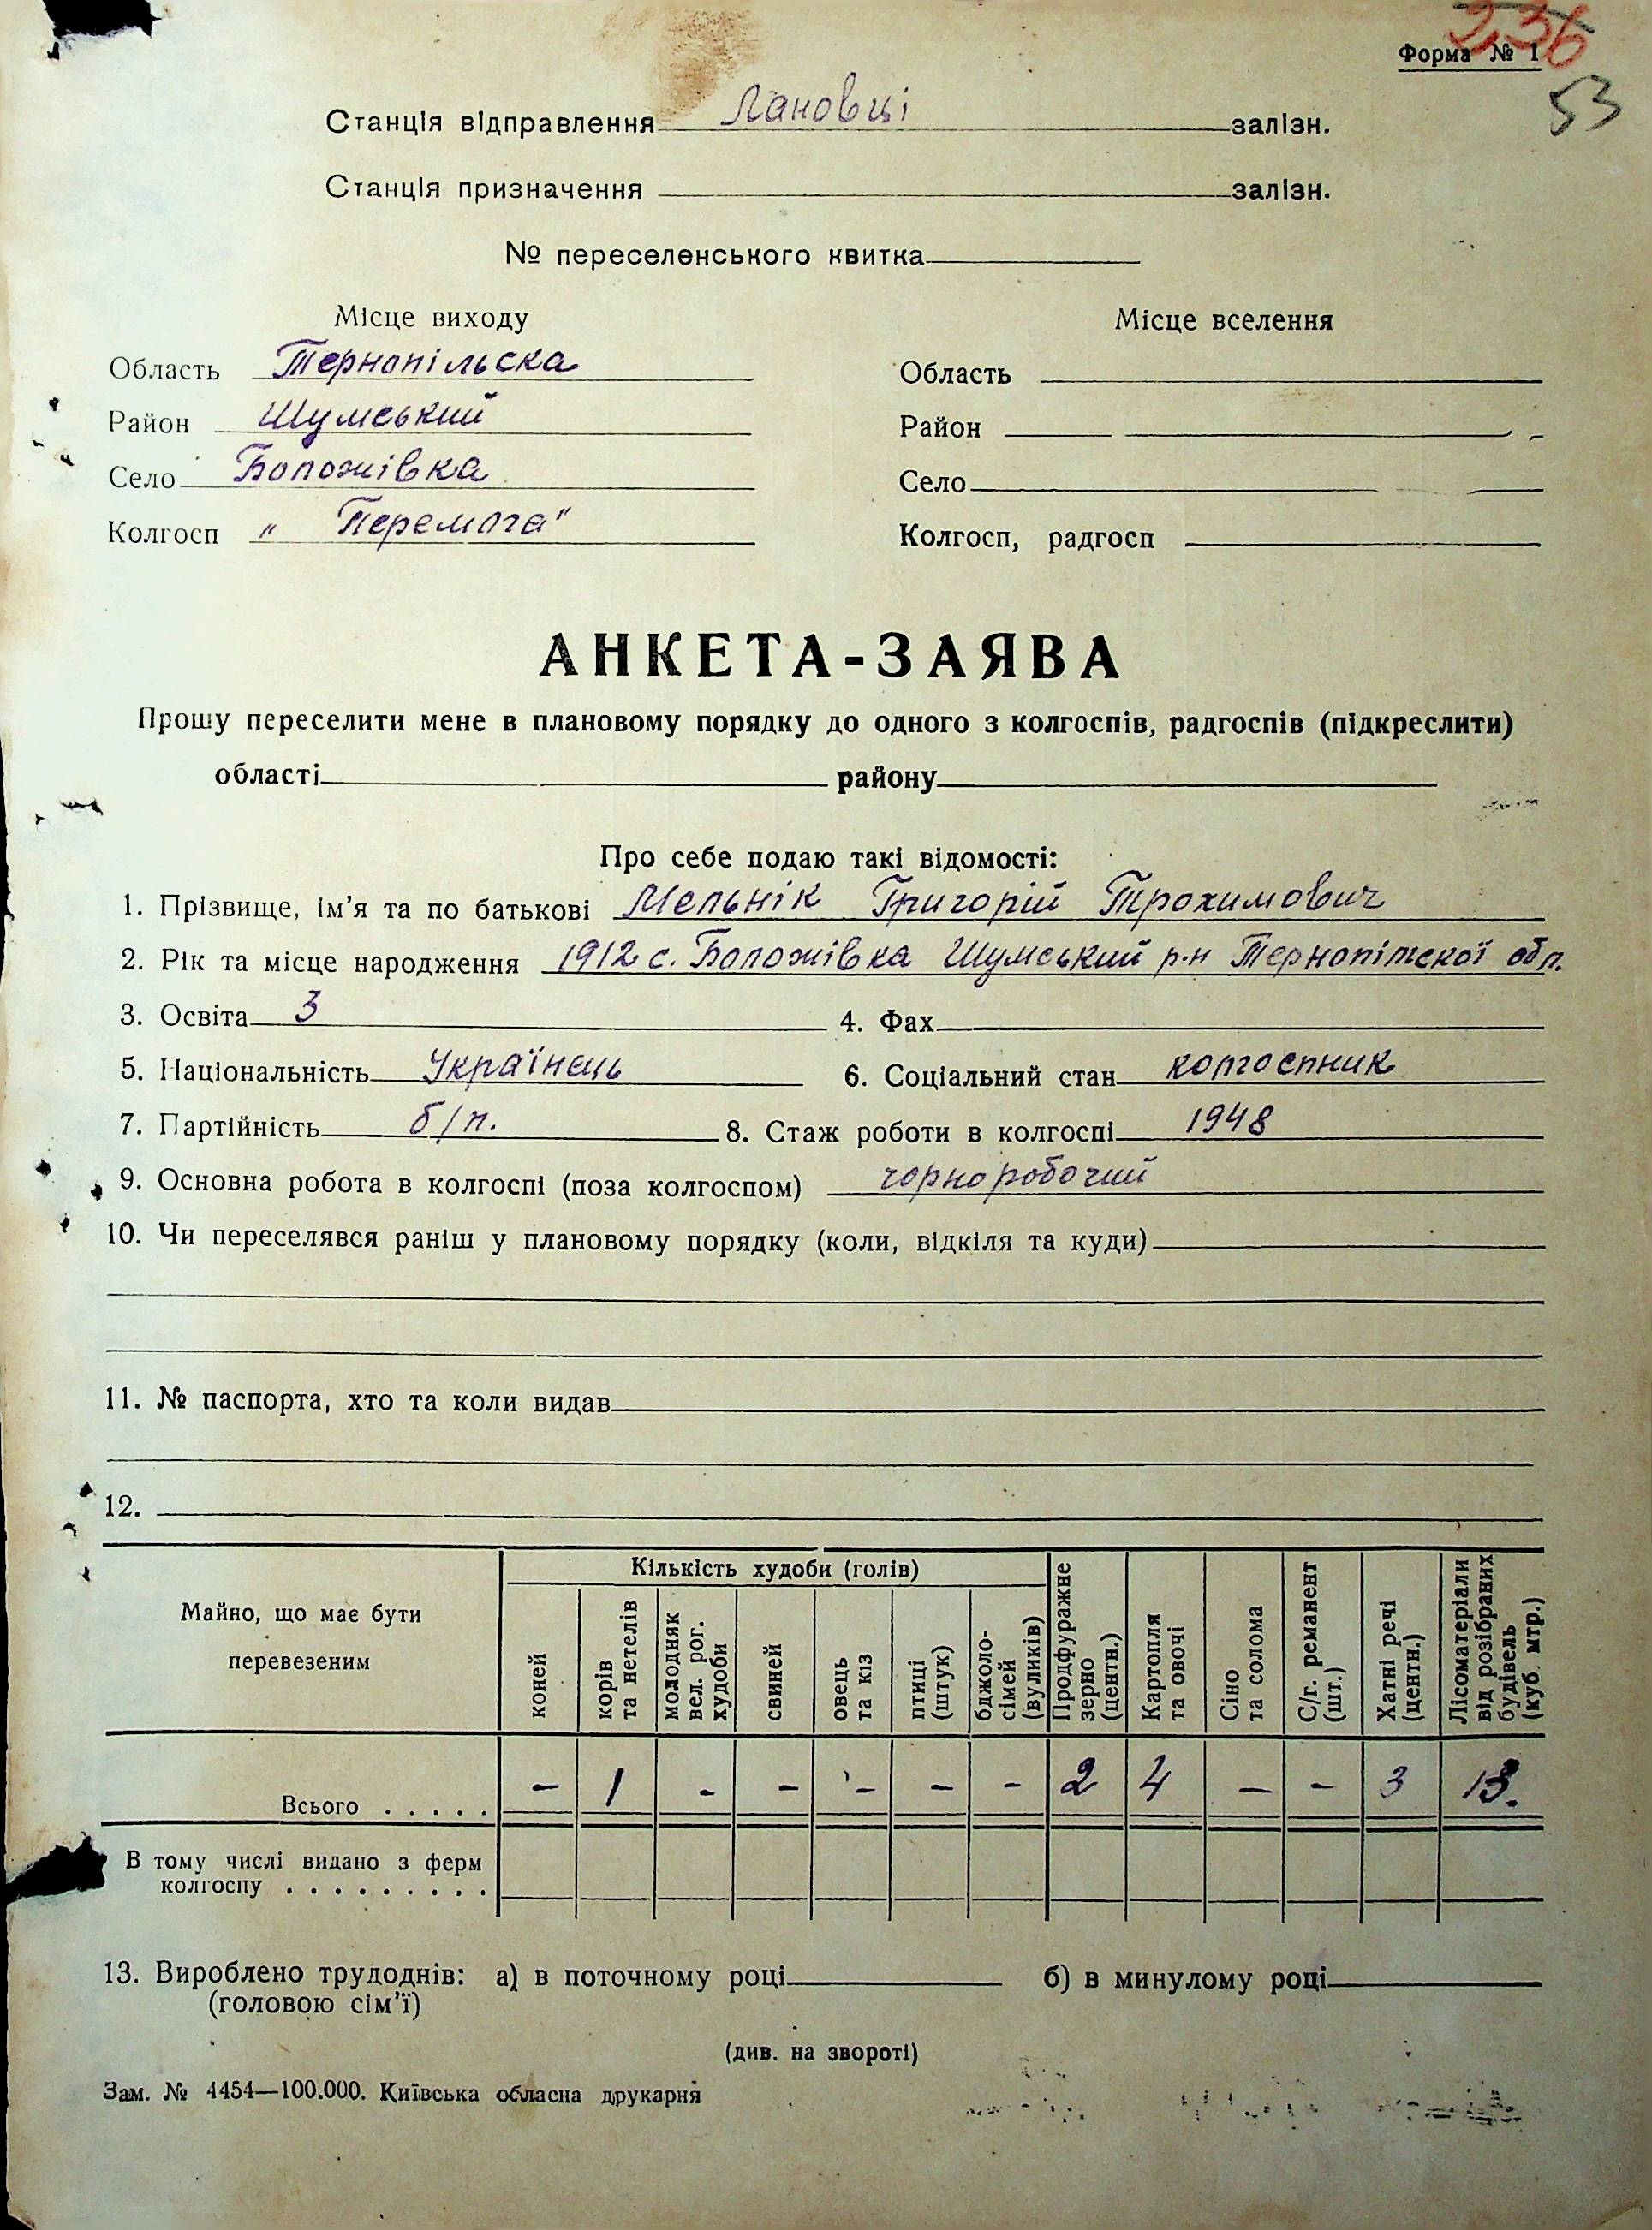 236
Форма № 1
53
Станція відправлення Лановці залізн.
Станція призначення залізн.
№ переселенського квитка
Місце виходу
Місце вселення
Область Тернопільска
Область
Район Шумський
Район
Село Боложівка
Село
Колгосп „ Перемога"
Колгосп, радгосп
АНКЕТА-ЗАЯВА
Прошу переселити мене в плановому порядку до одного з колгоспів, радгоспів (підкреслити)
області району
Про себе подаю такі відомості:
1. Прізвище, ім'я та по батькові Мельнік Григорій Трохимович
2. Рік та місце народження 1912 с. Боложівка Шумський р-н Тернопілскої обл.
3. Освіта 3 4. Фах
5. Національність Українець 6. Соціальний стан колгоспник
7. Партійність б/п. 8. Стаж роботи в колгоспі 1948
9. Основна робота в колгоспі (поза колгоспом) чорноробочий
10. Чи переселявся раніш у плановому порядку (коли, відкіля та куди)
11. № паспорта, хто та коли видав
12.
Майно, що має бути
перевезеним
Кількість худоби (голів)
коней
корів
та нетелів
молодняк
вел. рог.
худоби
свиней
овець
та кіз
птиці
(штук)
бджоло-
сімей
(вуликів)
Продфуражне
зерно
(центн.)
Картопля
та овочі
Сіно
та солома
С/г. реманент
(шт.)
Хатні речі
(центн.)
Лісоматеріали
від розібраних
будівель
(куб. мтр.)
Всього . . . . . – 1 - – – – – 2 4 – – 3 13.
В тому числі видано з ферм
колгоспу . . . . . . . . .
13. Вироблено трудоднів: а) в поточному році б) в минулому році
(головою сім'ї)
(див. на звороті)
Зам. № 4454—100.000. Київська обласна друкарня